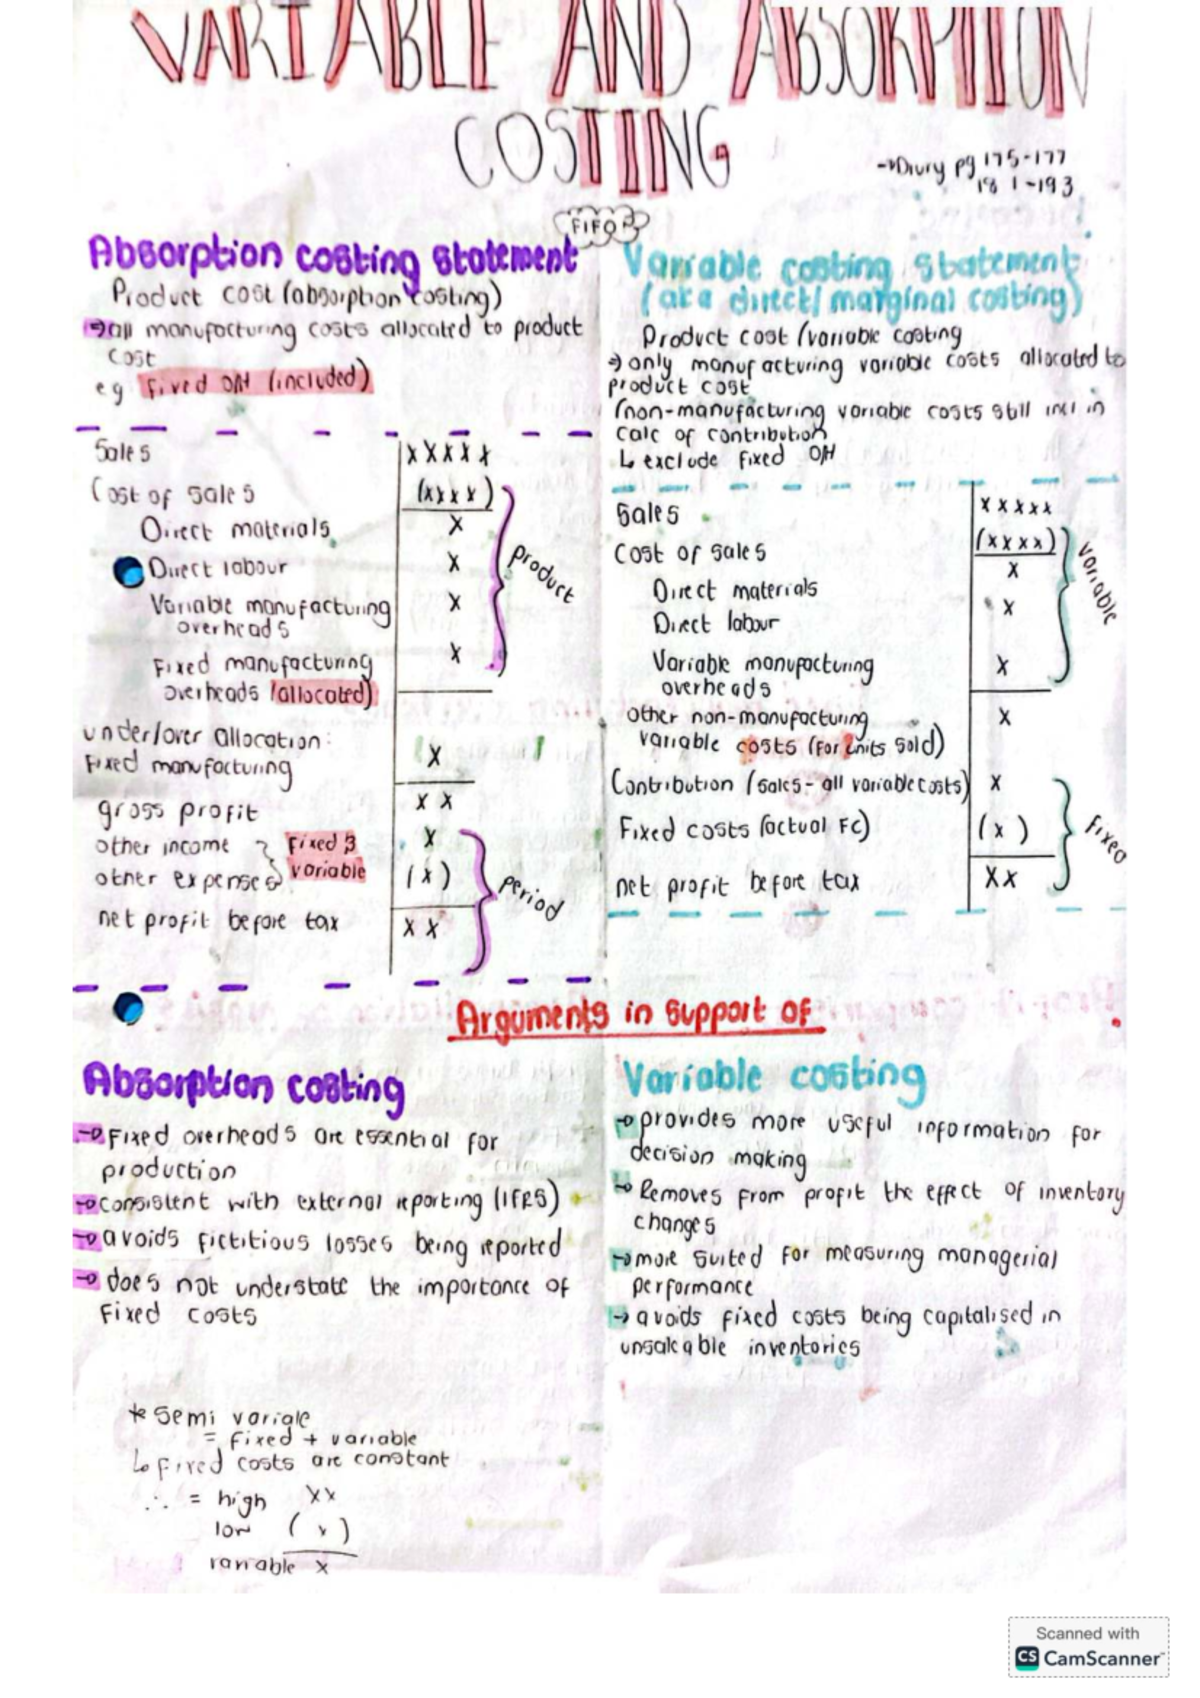 VARIABLE AND ABSORPTION
COSTING
→Drury pg 175-177
181-193
FIFO
Absorption costing statement
Product cost (absorption costing)
⇒all manufacturing costs allocated to product
cost
eg fixed O/H (included)
Sales XXXXX
Cost of sales (xxxx)
Direct materials X
Direct labour X
Variable manufacturing X
overheads
Fixed manufacturing X
overheads (allocated)
product
under/over allocation: X
Fixed manufacturing
gross profit X X
other income X
other expenses (x)
Fixed &
variable
net profit before tax X X
period
Variable costing statement
(aka direct/marginal costing)
Product cost (variable costing
→ only manufacturing variable costs allocated to
product cost
(non-manufacturing variable costs still incl in
calc of contribution
↳ exclude fixed O/H
Sales XXXXX
Cost of sales (xxxx)
Direct materials X
Direct labour X
Variable manufacturing X
overheads
variable
other non-manufacturing X
variable costs (for units sold)
Contribution (sales - all variable costs) X
Fixed costs (actual FC) (x)
net profit before tax XX
fixed
Arguments in support of
Absorption costing
→Fixed overheads are essential for
production
→consistent with external reporting (IFRS)
→avoids fictitious losses being reported
→does not understate the importance of
fixed costs
Variable costing
→provides more useful information for
decision making
→Removes from profit the effect of inventory
changes
→more suited for measuring managerial
performance
→avoids fixed costs being capitalised in
unsaleable inventories
* Semi variale
= fixed + variable
↳ fixed costs are constant
∴ = high XX
low (x)
variable x
Scanned with
CS CamScanner